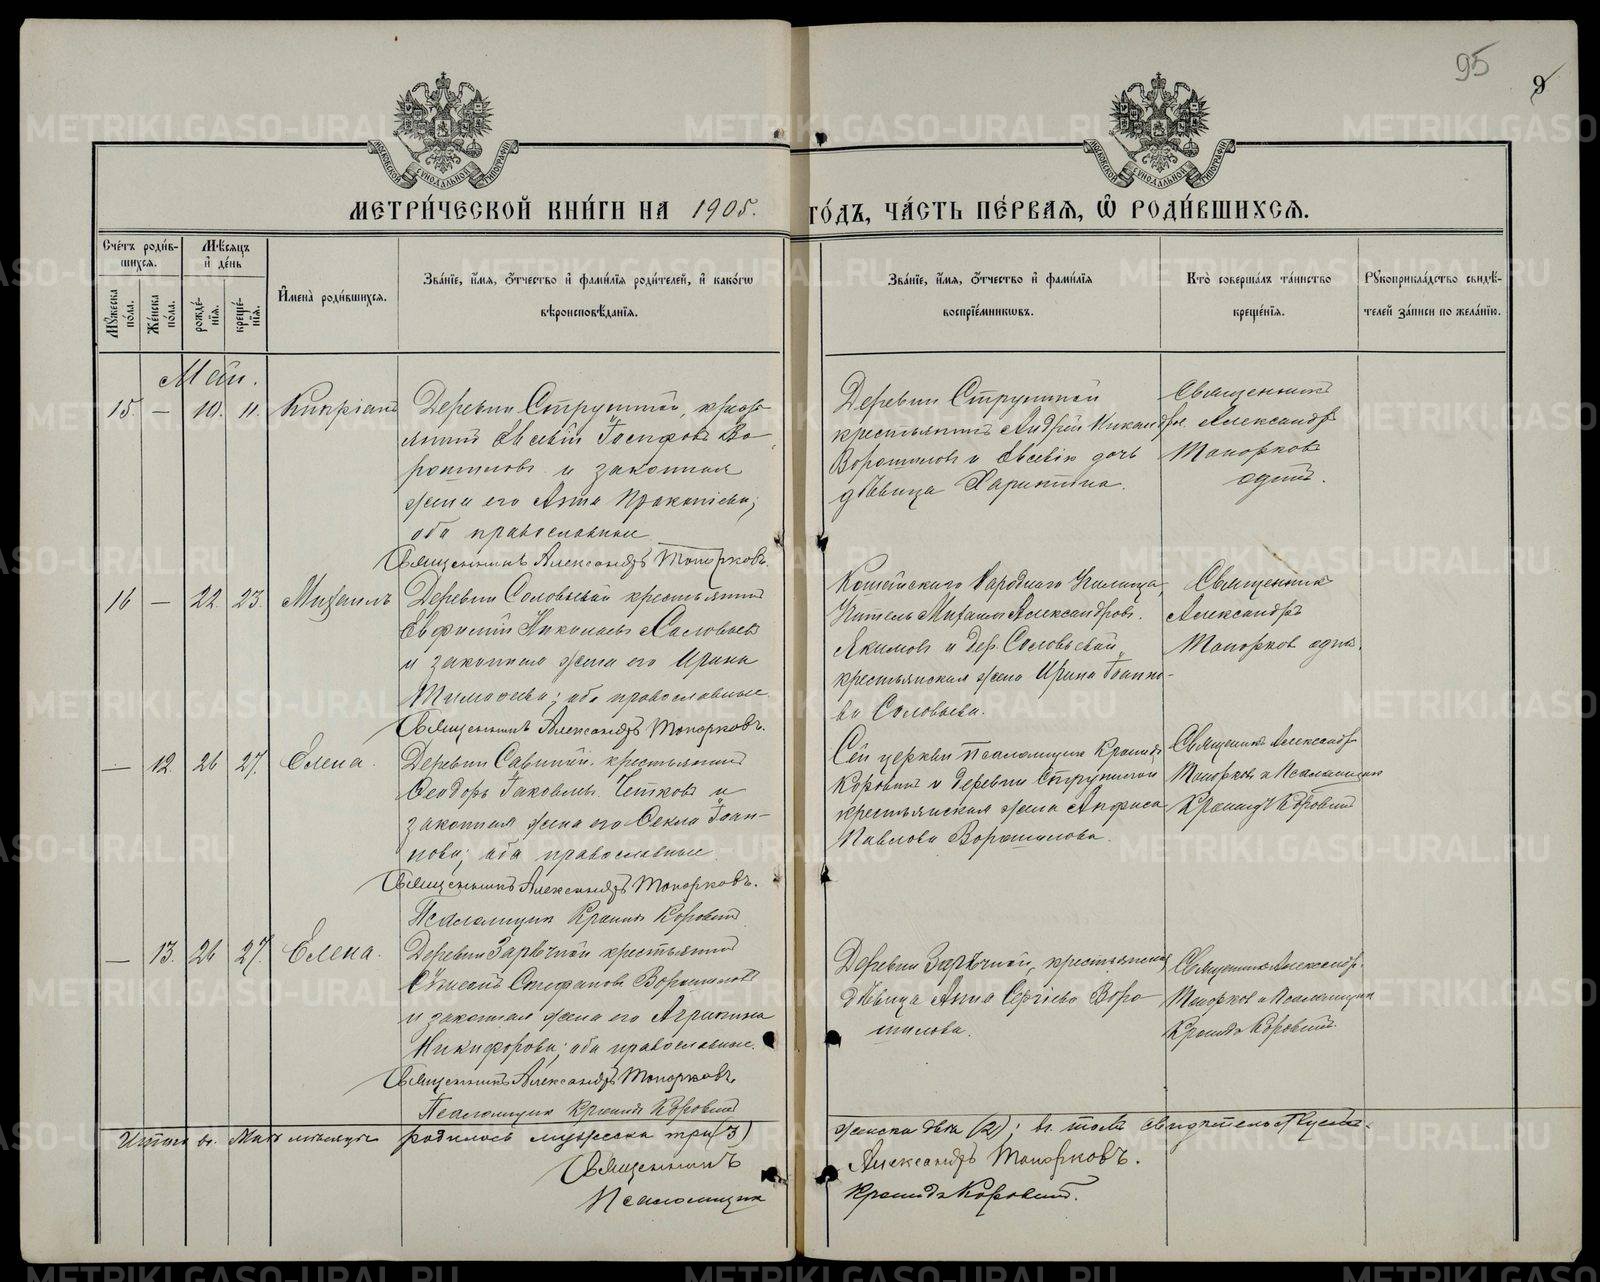 95
9
МОСКОВСКОЙ СѴНОДАЛЬНОЙ ТИПОГРАФІИ
МОСКОВСКОЙ СѴНОДАЛЬНОЙ ТИПОГРАФІИ
МЕТРИ́ЧЕСКОЙ КНИ́ГИ НА 1905.
ГО́ДЪ, ЧА́СТЬ ПЕ́РВАЯ, Ѡ҆ РОДИ́ВШИХСЯ.
Сче́тъ роди́в-
шихся.
Мѣ́сяцъ
и҆ де́нь
Мꙋ́жеска
по́ла.
Же́нска
по́ла.
рожде́-
нїѧ.
креще́-
нїѧ.
И҆мена̀ роди́вшихся.
Зва́нїе, и҆́мя, ѻ҆́тчество и҆ фами́лїя роди́телей, и҆ како́гѡ
вѣроисповѣ́данїя.
Зва́нїе, и҆́мя, ѻ҆́тчество и҆ фами́лїя
воспрїе́мникѡвъ.
Кто̀ соверша́лъ та́инство
креще́нїя.
Рꙋкоприкла́дство свидѣ́-
телей за́писи по жела́нїю.
Май.
15. — 10. 11. Кипріанъ
Деревни Струниной, кресть-
янинъ Евсевій Іосифовъ Во-
рошиловъ и законная
жена его Анна Прокопіева;
оба православные
Священникъ Александръ Топорковъ.
Деревни Струниной
крестьянинъ Андрей Никандров.
Ворошиловъ и Евсевія дочь
дѣвица Харитина.
Священникъ
Александръ
Топорковъ
одинъ.
16 — 22. 23. Михаилъ
Деревни Соловьевой крестьянинъ
Евфимій Николаевъ Соловьевъ
и законная жена его Ирина
Тимофеева; оба православные.
Священникъ Александръ Топорковъ.
Народнаго Училища
Учитель Михаилъ Александровъ.
Якимовъ и дер. Соловьевой,
крестьянская жена Ирина Іоанно-
ва Соловьева.
Священникъ
Александръ
Топорковъ одинъ.
— 12. 26 27. Елена.
Деревни Савиной крестьянинъ
Ѳеодоръ Іаковлевъ Четковъ и
законная жена его Ѳекла Іоан-
нова; оба православные
Священникъ Александръ Топорковъ.
Псаломщикъ Кронидъ Коровинъ
Сей церкви Псаломщикъ Кронидъ
Коровинъ и деревни Струниной
крестьянская жена Анфиса
Павлова Ворошилова.
Священникъ Александръ
Топорковъ и Псаломщикъ
Кронидъ Коровинъ
— 13. 26 27. Елена.
Деревни Зарѣчной крестьянинъ
Стефановъ Ворошиловъ
и законная жена его Агрипина
Никифорова; оба православные.
Священникъ Александръ Топорковъ
Псаломщикъ Кронидъ Коровинъ
Деревни Зарѣчной, крестьянская
дѣвица Анна Сергіева Воро-
шилова.
Священникъ Александръ
Топорковъ и Псаломщикъ
Кронидъ Коровинъ.
Итого въ Маѣ мѣсяцѣ родилось мужеска три (3)
женска два (2); въ томъ свидѣтельствуемъ.
Священникъ Александръ Топорковъ.
Псаломщикъ Кронидъ Коровинъ.
METRIKI.GASO-URAL.RU